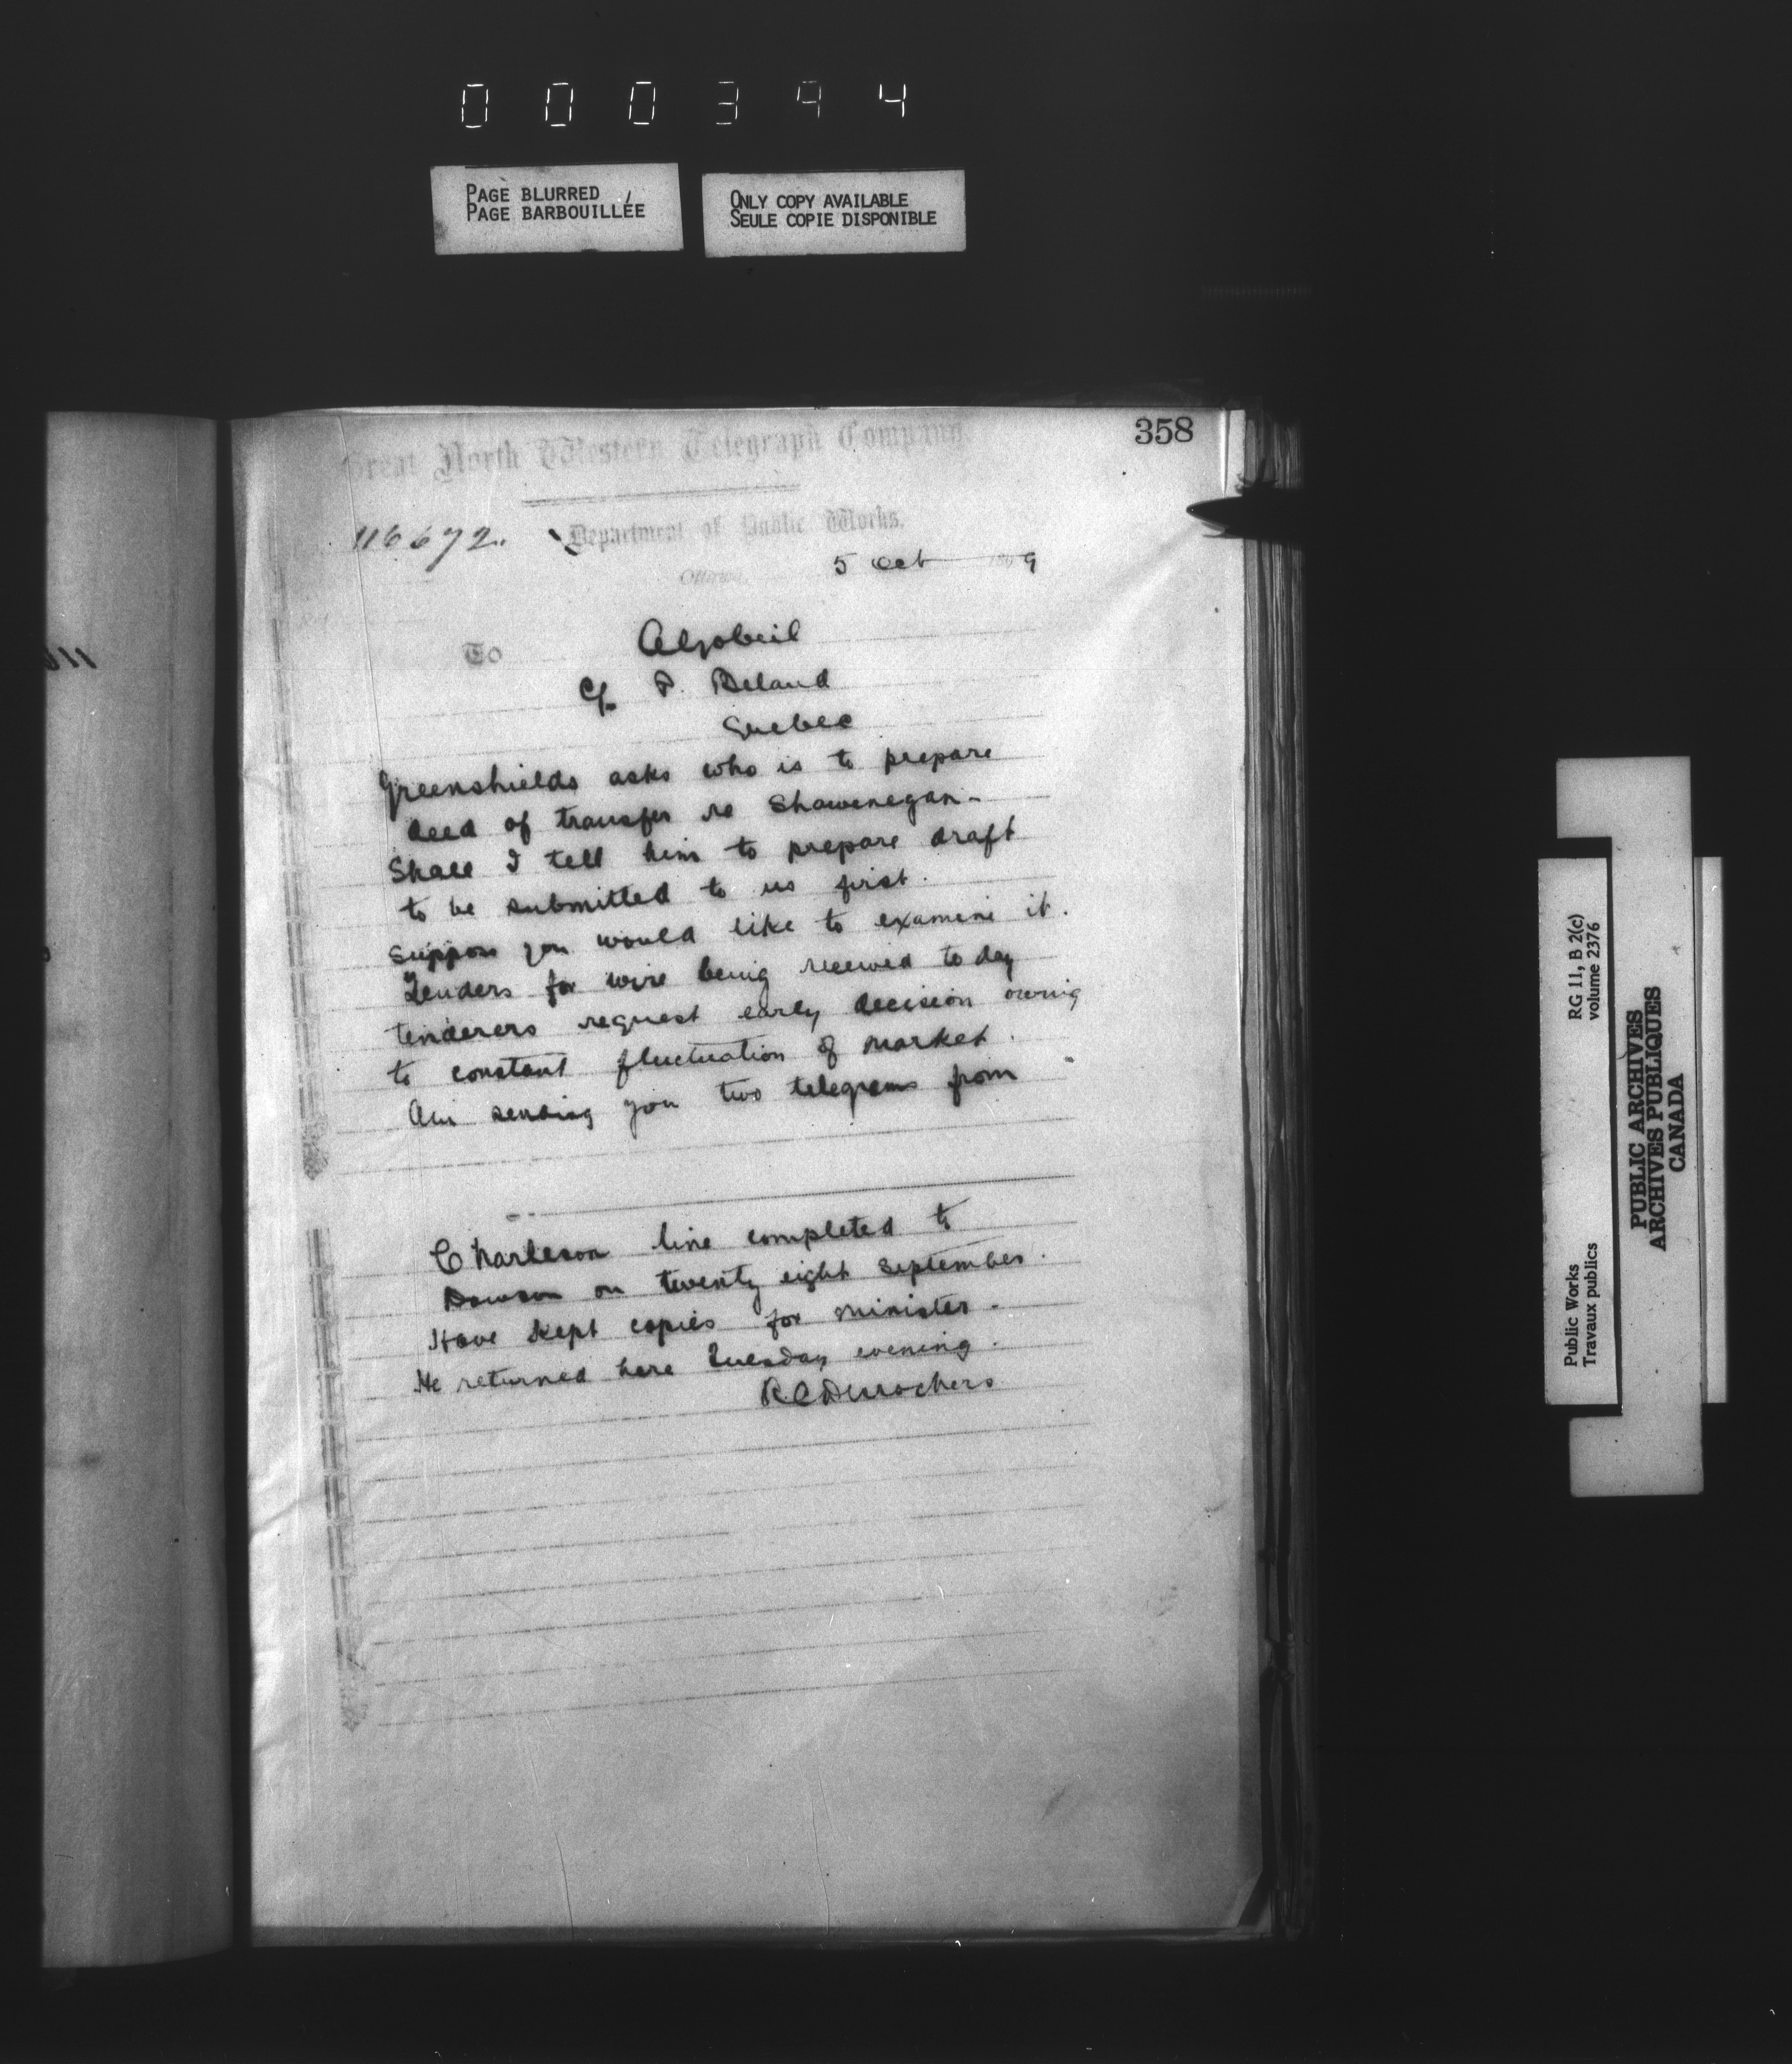 000394
PAGE BLURRED
PAGE BARBOUILLÉE
ONLY COPY AVAILABLE
SEULE COPIE DISPONIBLE
358
Great North Western Telegraph Company
116672.
Department of Public Works.
Ottawa, 5 Oct 1899
To AGobeil
c/o P. Beland
Quebec
Greenshields asks who is to prepare
deed of transfer re Shawenegan -
Shall I tell him to prepare draft
to be submitted to us first.
Suppose you would like to examine it.
Tenders for wire being received to day
tenderers request early decision owing
to constant fluctuation of market.
Am sending you two telegrams from
Charleson line completed to
Dawson on twenty eight September.
Have kept copies for minister -
He returned here Tuesday evening.
RCDesrochers
Public Works
Travaux publics
RG 11, B 2(c)
volume 2376
PUBLIC ARCHIVES
ARCHIVES PUBLIQUES
CANADA